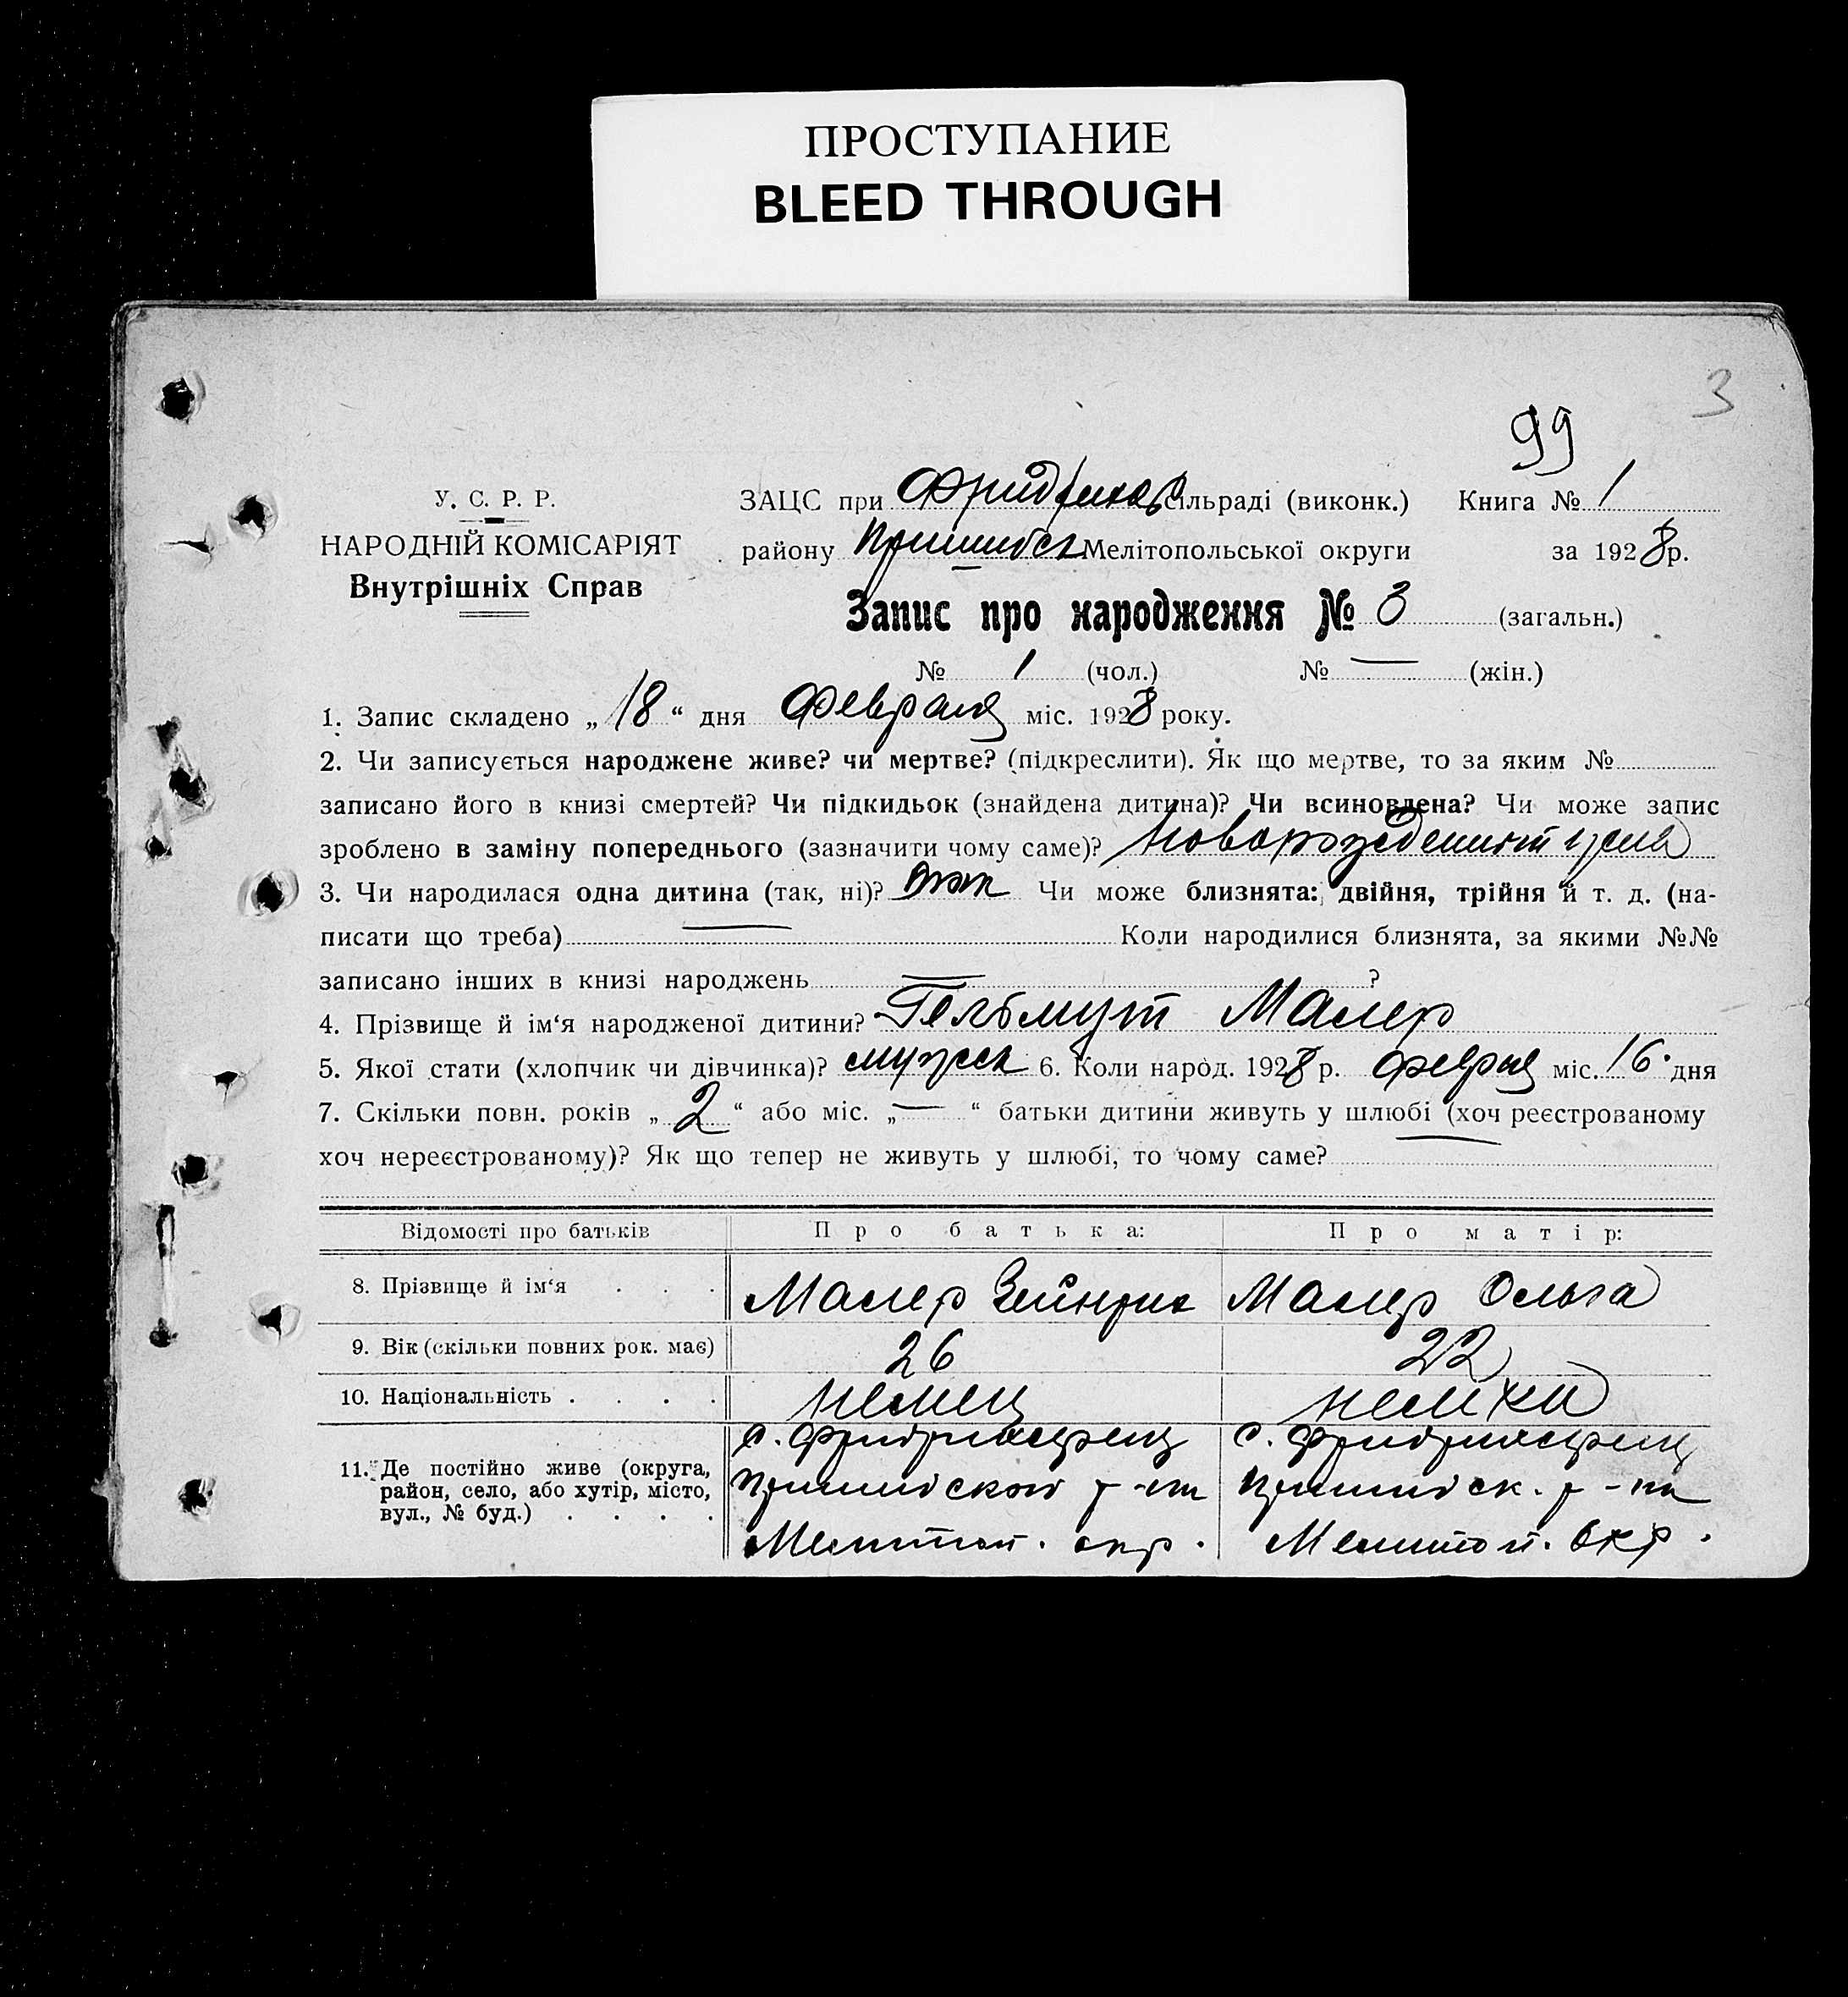 ПРОСТУПАНИЕ
BLEED THROUGH
3
99
У. С. Р. Р.
НАРОДНІЙ КОМІСАРІЯТ
Внутрішніх Справ
ЗАЦС при Фридрихов сільраді (виконк.) Книга № 1
району Пришибск Мелітопольської округи за 1928 р.
Запис про народження № 3 (загальн.)
№ 1 (чол.) № — (жін.)
1. Запис складено „18“ дня Февраля міс. 1928 року.
2. Чи записується народжене живе? чи мертве? (підкреслити). Як що мертве, то за яким №
записано його в книзі смертей? Чи підкидьок (знайдена дитина)? Чи всиновлена? Чи може запис
зроблено в заміну попереднього (зазначити чому саме)?
3. Чи народилася одна дитина (так, ні)? Так Чи може близнята: двійня, трійня й т. д. (на-
писати що треба) — Коли народилися близнята, за якими №№
записано інших в книзі народжень — ?
4. Прізвище й ім‘я народженої дитини? Гельмут Малер
5. Якої стати (хлопчик чи дівчинка)? мужск 6. Коли народ. 1928 р. Февраля міс. 16 дня
7. Скільки повн. років „2“ або міс. „—“ батьки дитини живуть у шлюбі (хоч реєстрованому
хоч нереєстрованому)? Як що тепер не живуть у шлюбі, то чому саме? —
Відомості про батьків Про батька: Про матір:
8. Прізвище й ім‘я . . . Малер Гейнрих Малер Ольга
9. Вік (скільки повних рок. має) 26 22
10. Національність . . . . немец немка
11. Де постійно живе (округа,
район, село, або хутір, місто,
вул., № буд.) . . . .
с. Фридрихсфельд
Пришибского р-на
Мелитоп. окр.
с. Фридрихсфельд
Пришибск. р-на
Мелитоп. окр.